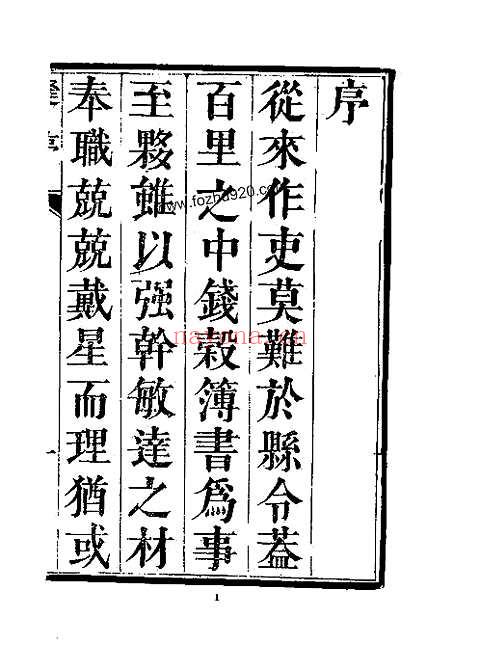 序
從來作吏莫難於縣令葢
百里之中錢榖簿書爲事
至夥雖以强幹敏達之材
奉職兢兢戴星而理猶或
www.fozhu920.com
1